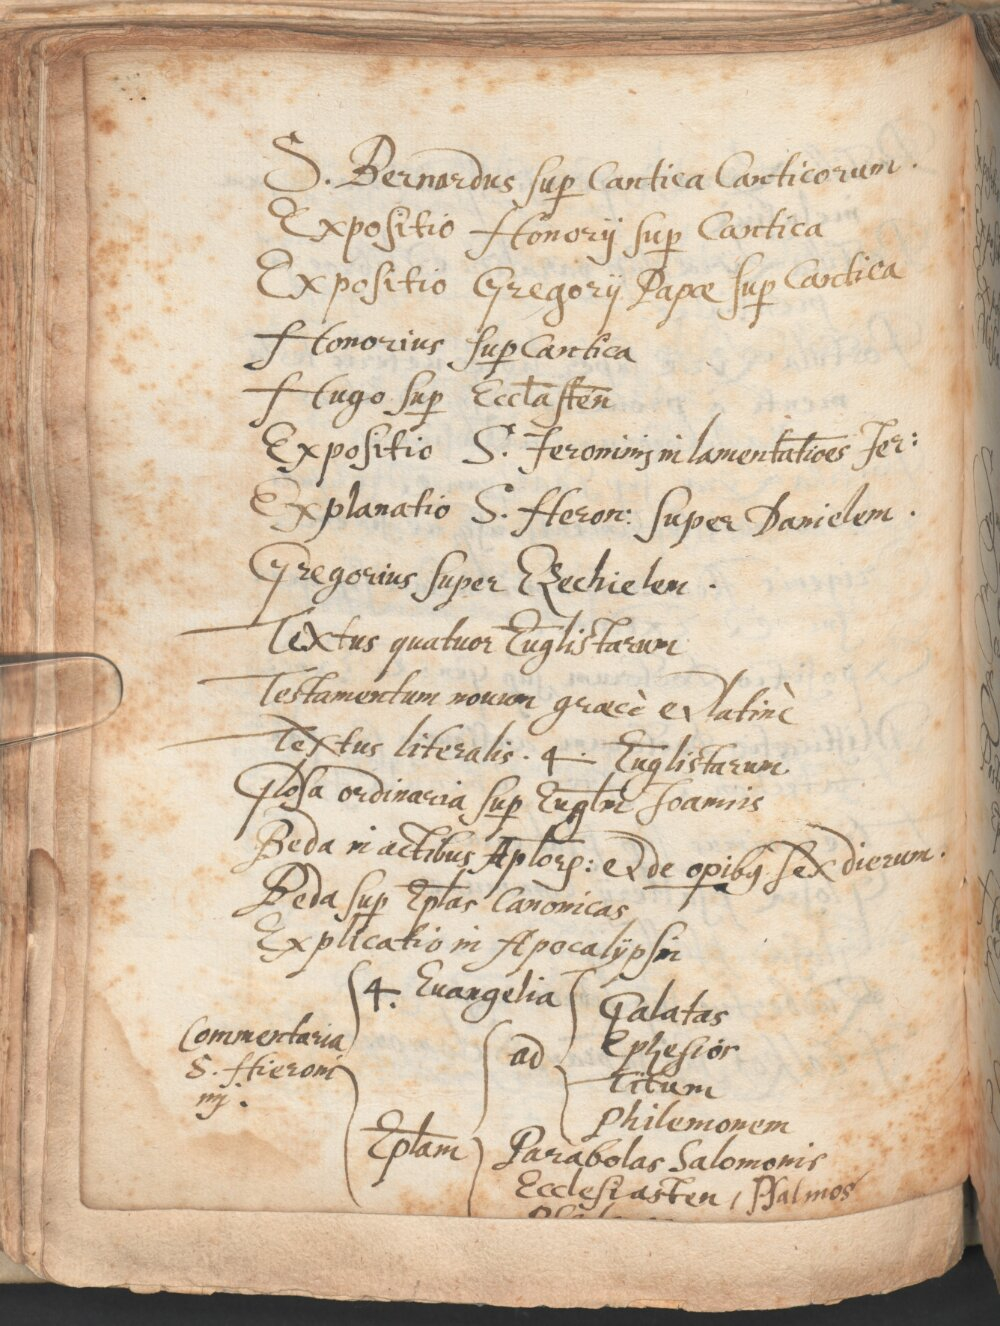 S. Bernardus sup Cantica Canticorum.
Expositio Honorij sup Cantica
Expositio Gregorij Papæ sup Cantica
Honorius sup Cantica
Hugo sup Ecclāstēn
Expositio S. Jeronimj in lamentatiōes Jer:
Explanatio S. Heron: super Danielem.
Gregorius super Ezechielem.
Textus quatuor Euglistarum
Testamentum nouum græcè et latinè
Textus literalis. 4 Euglistarum
Glosa ordinaria sup Euglm Joannis
Beda in actibus Aplorꝝ: et de opibꝫ sex dierum.
Beda sup Eplas Canonicas
Explicatio in Apocalÿpsin
Commentaria
S. Hieroni
mj.
4. Euangelia
Eplam
ad
Galatas
Ephesios
Titum
Philemonem
Parabolas Salomonis
Ecclesiasten, Psalmos